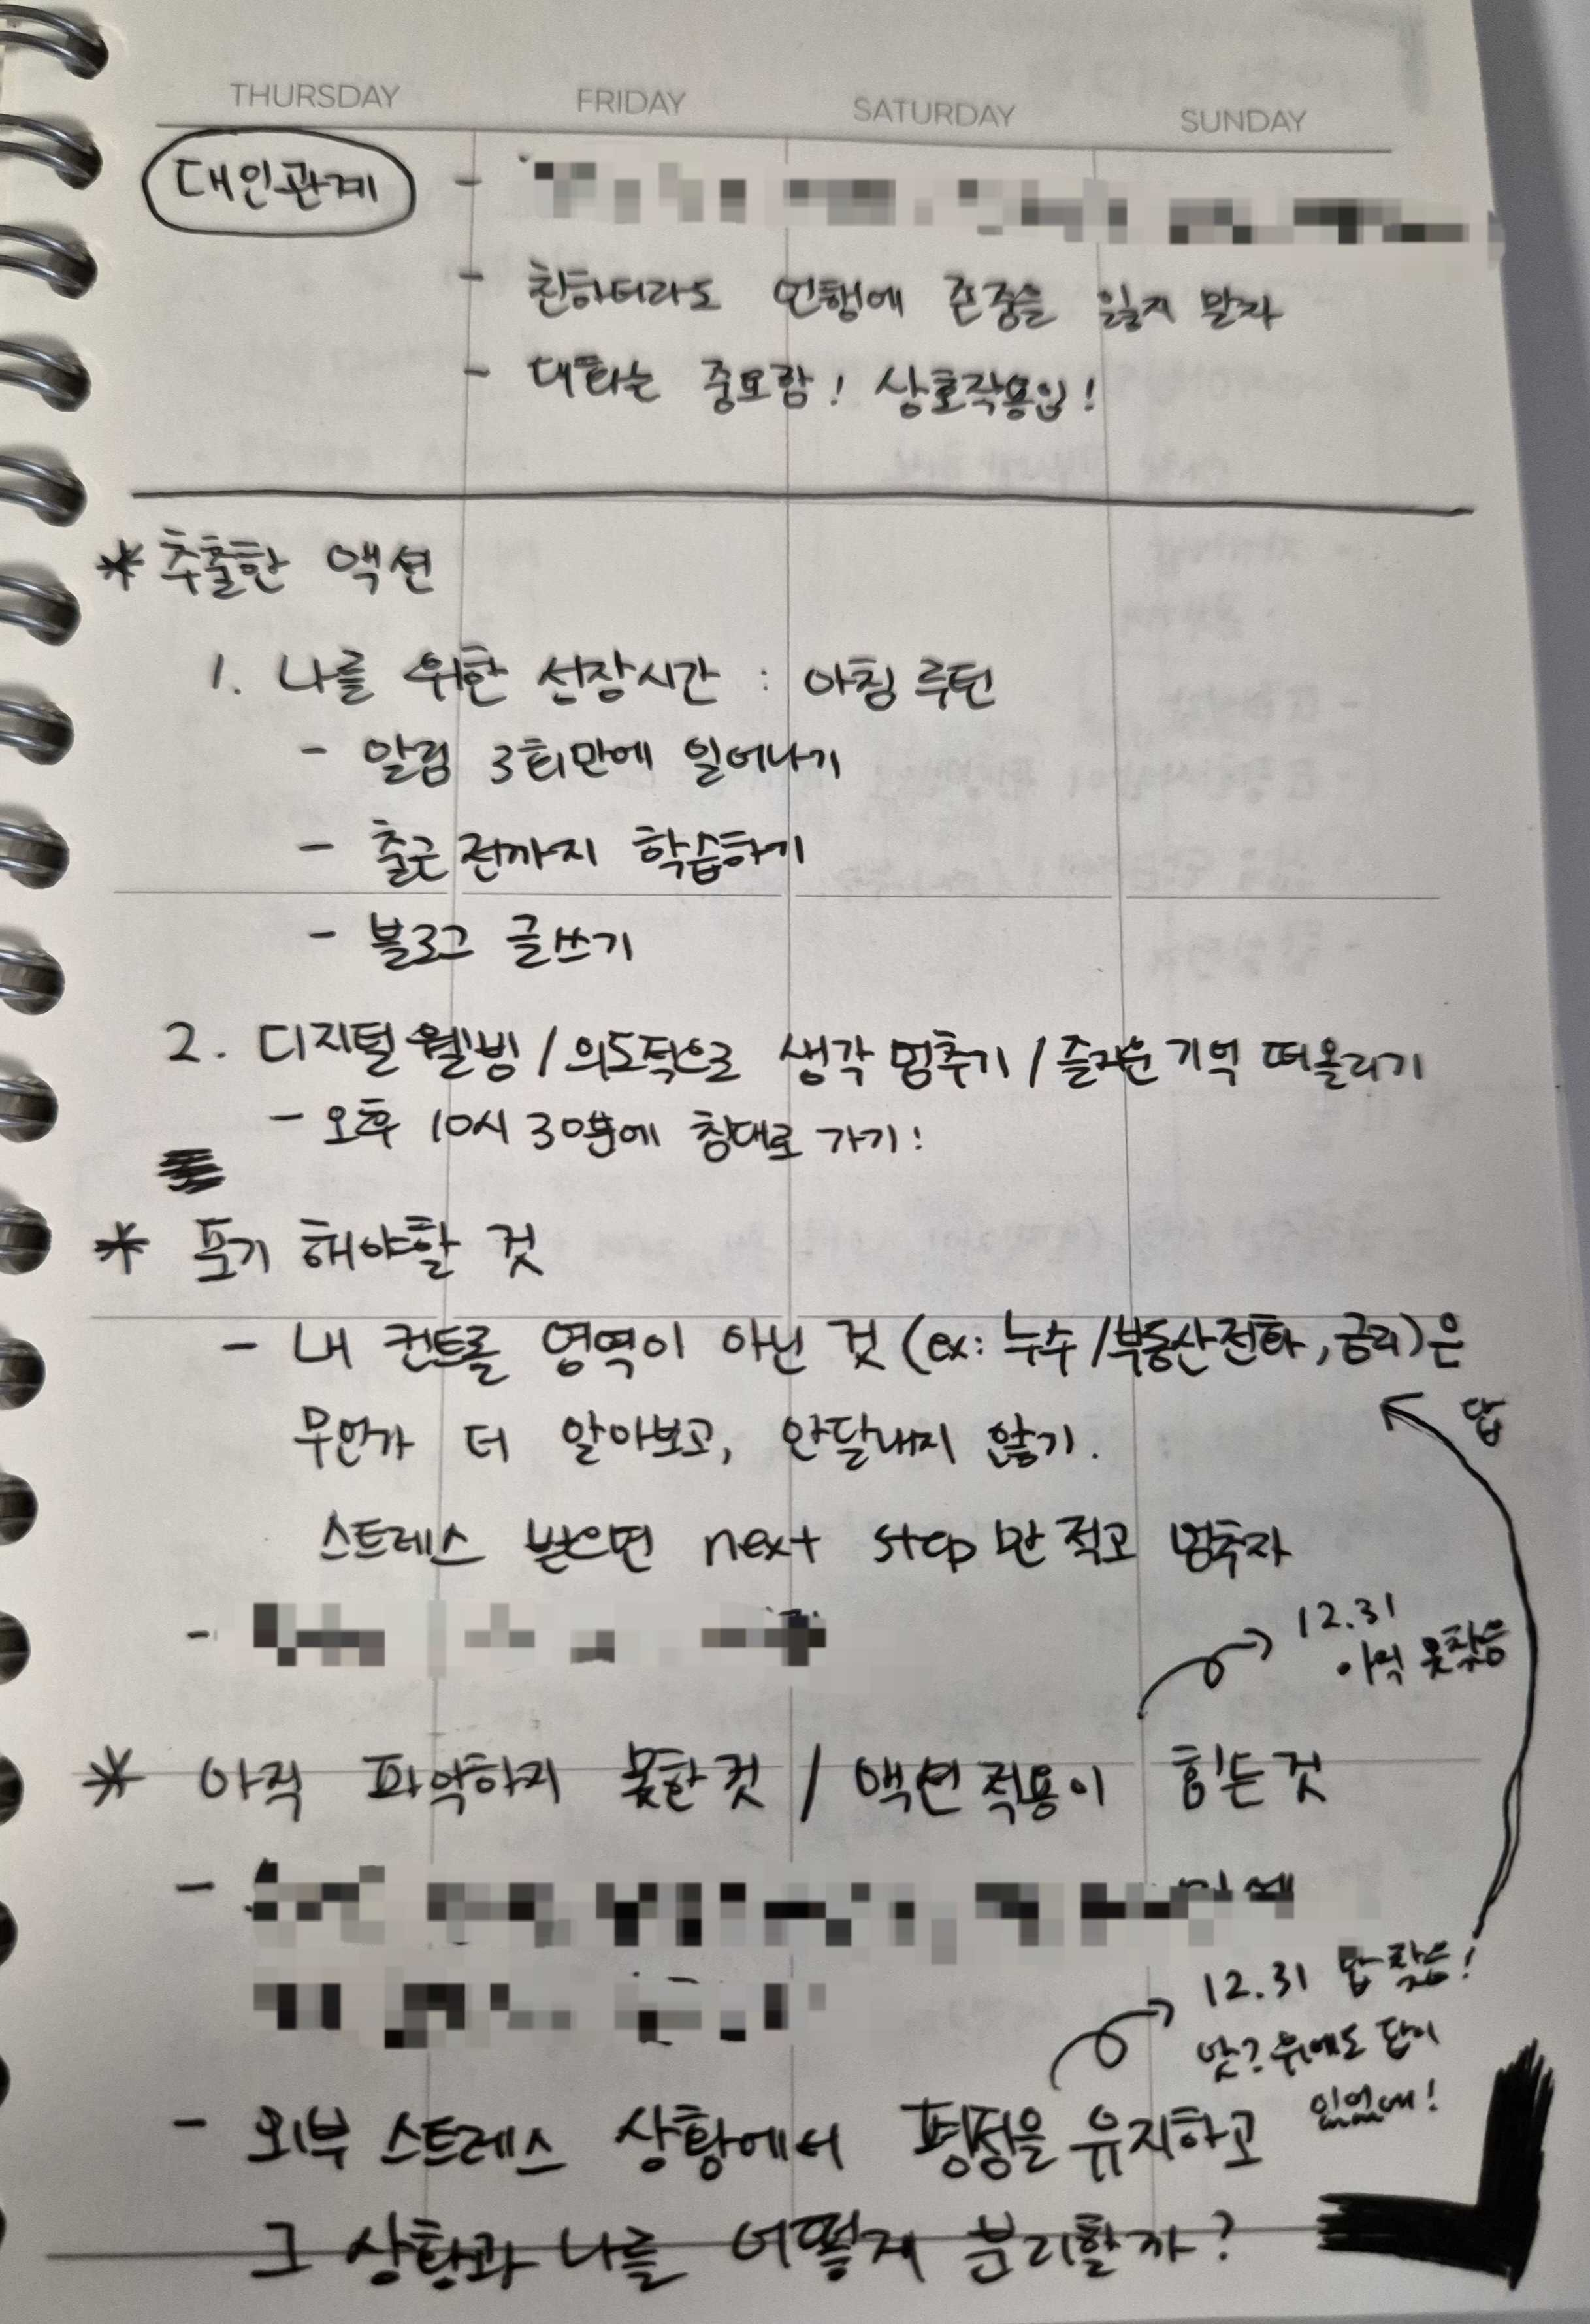 THURSDAY FRIDAY SATURDAY SUNDAY
대인관계 -
- 친하더라도 언행에 존중을 잃지 말자
- 대화는 중요함! 상호작용임!
* 추출한 액션
1. 나를 위한 성장시간 : 아침 루틴
- 알림 3회만에 일어나기
- 출근 전까지 학습하기
- 블로그 글쓰기
2. 디지털 웰빙 / 의도적으로 생각 멈추기 / 즐거운 기억 떠올리기
- 오후 10시 30분에 침대로 가기!
* 포기 해야할 것
- 내 컨트롤 영역이 아닌 것 (ex: 누수 / 부동산전화, 금리)은
무언가 더 알아보고, 안달내지 않기.
답
스트레스 받으면 next step만 적고 멈추자
-
12.31
아직 못찾음
* 아직 파악하지 못한 것 / 액션 적용이 힘든 것
-
12.31 답 찾음!
앗? 위에도 답이
있었네!
- 외부 스트레스 상황에서 평정을 유지하고
그 상황과 나를 어떻게 분리할까?